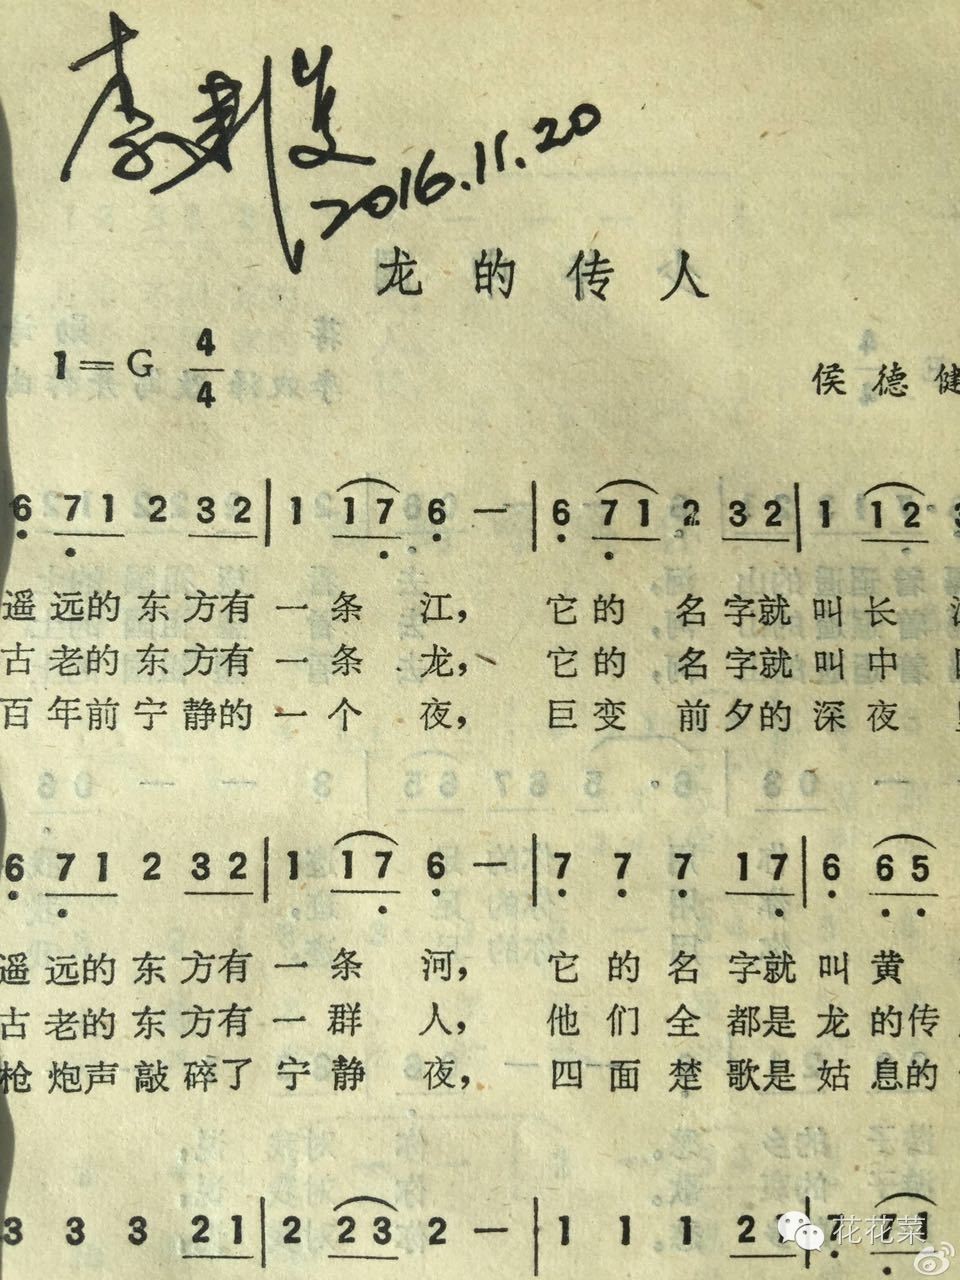 李建复
2016.11.20
龙的传人
1=G 4/4
侯德健
6 7 1 2 3 2 | 1 1 7 6 — | 6 7 1 2 3 2 | 1 1 2
遥远的东方有一条江，它的名字就叫长
古老的东方有一条龙，它的名字就叫中
百年前宁静的一个夜，巨变前夕的深夜
6 7 1 2 3 2 | 1 1 7 6 — | 7 7 7 1 7 | 6 6 5
遥远的东方有一条河，它的名字就叫黄
古老的东方有一群人，他们全都是龙的传
枪炮声敲碎了宁静夜，四面楚歌是姑息的
3 3 3 2 1 | 2 2 3 2 — | 1 1 1 2 1 | 7 7 1
花花菜